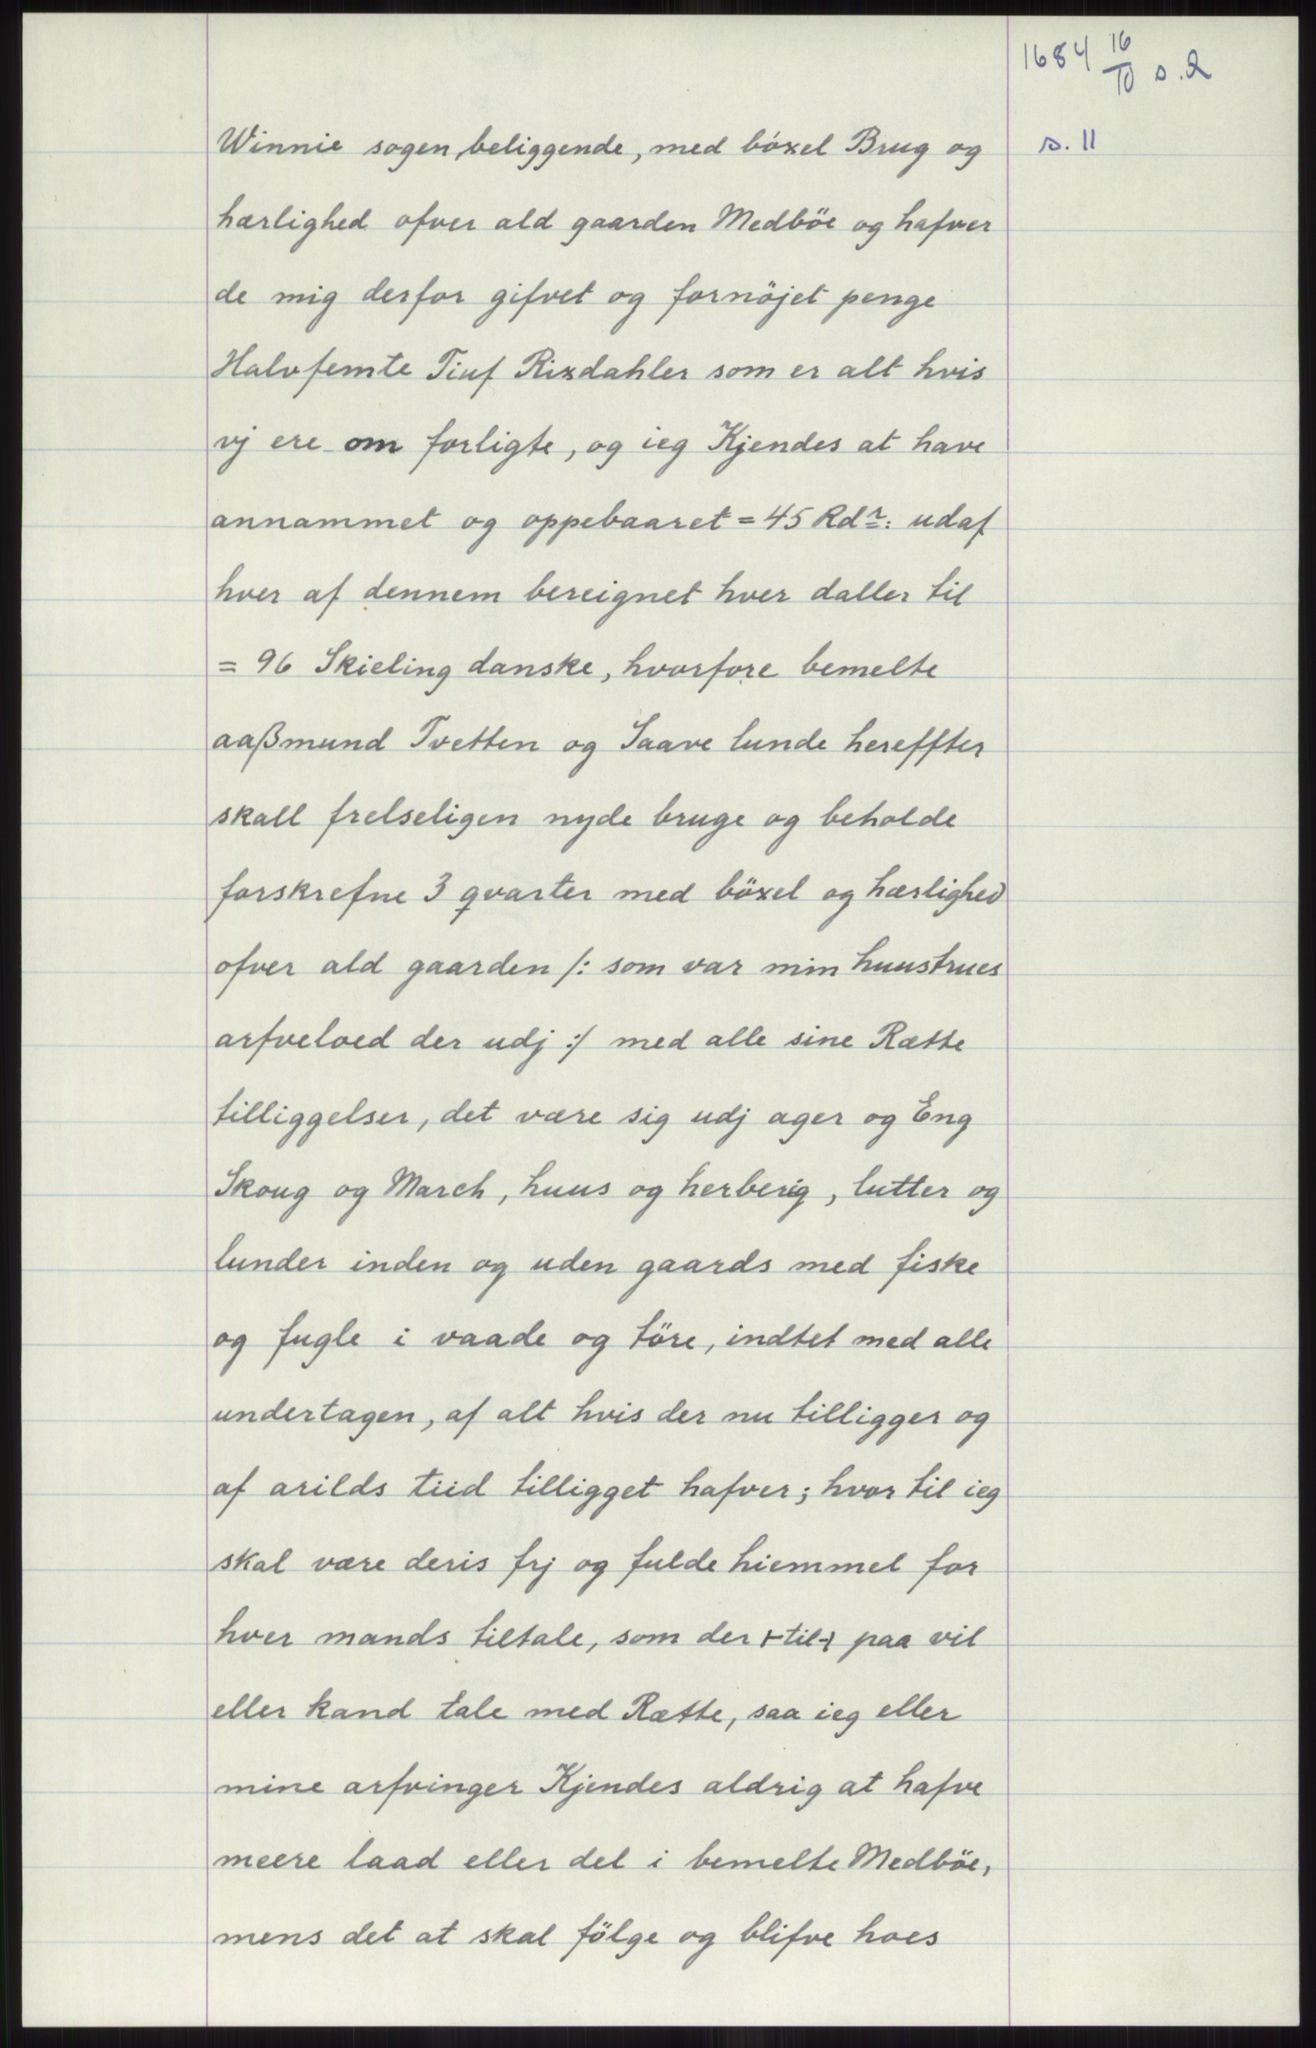 1684 16/10 s. 2
s. 11
Winnie sogen, beliggende, med böxel Brug og
hærlighed ofver ald gaarden Medböe og hafver
de mig derfor gifvet og fornöjet penge
Halvfemte Tiuf Rixdahler som er alt hvis
vj ere om forligte, og ieg Kjendes at have
annammet og oppebaaret = 45 Rdr: udaf
hver af dennem bereignet hver daller til
= 96 Skieling danske, hvorfore bemelte
aaßmund Tvetten og Saave lunde hereffter
skall frelseligen nyde bruge og beholde
forskrefne 3 qvarter med böxel og hærlighed
ofver ald gaarden /: som var min huustrues
arfveloed der udj :/ med alle sine Rætte
tilliggelser, det være sig udj ager og Eng
Skoug og March, huus og herberig, lutter og
lunder inden og uden gaards med fiske
og fugle i vaade og töre, indtet med alle
undertagen, af alt hvis der nu tilligger og
af arilds tiid tilligget hafver; hvor til ieg
skal være deris frj og fulde hiemmel for
hver mands tiltale, som der ⊢til⊣ paa vil
eller kand tale med Rætte, saa ieg eller
mine arfvinger Kjendes aldrig at hafve
meere laad eller del i bemelte Medböe,
mens det at skal fölge og blifve hoes